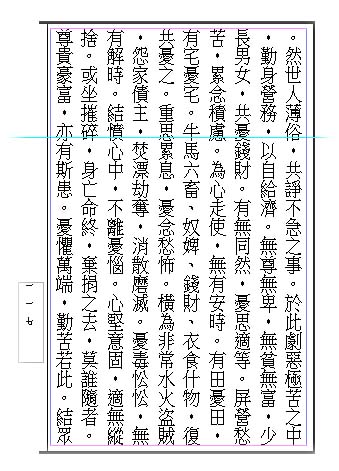 。然世人薄俗・共諍不急之事。於此劇惡極苦之中
・勤身營務・以自給濟。無尊無卑・無貧無富・少
長男女・共憂錢財。有無同然・憂思適等。屏營愁
苦・累念積慮。為心走使・無有安時。有田憂田・
有宅憂宅。牛馬六畜、奴婢、錢財、衣食什物・復
共憂之。重思累息・憂念愁怖。橫為非常水火盜賊
・怨家債主・焚漂劫奪・消散磨滅。憂毒忪忪・無
有解時。結憤心中・不離憂惱。心堅意固・適無縱
捨。或坐摧碎・身亡命終・棄捐之去・莫誰隨者。
尊貴豪富・亦有斯患。憂懼萬端・勤苦若此。結眾
一一七